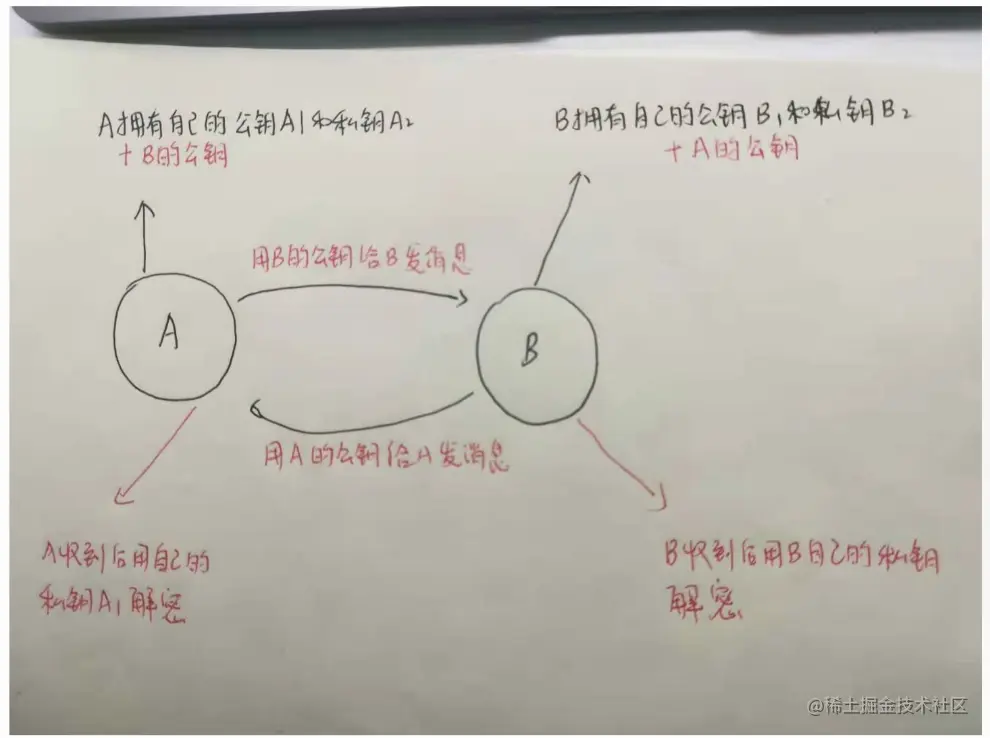 A拥有自己的公钥A1和私钥A2
+ B的公钥
B拥有自己的公钥B1和私钥B2
+ A的公钥
用B的公钥给B发消息
A
B
用A的公钥给A发消息
A收到后用自己的
私钥A1解密
B收到后用B自己的私钥
解密
@稀土掘金技术社区